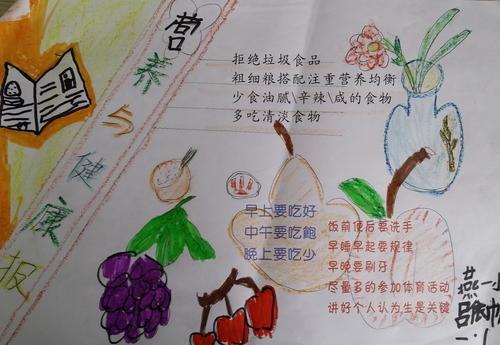 营养与健康报
拒绝垃圾食品
粗细粮搭配注重营养均衡
少食油腻\辛辣\咸的食物
多吃清淡食物
早上要吃好
中午要吃饱
晚上要吃少
饭前便后要洗手
早睡早起要规律
早晚要刷牙
尽量多的参加体育活动
讲好个人认为生是关键
燕一小
一.1